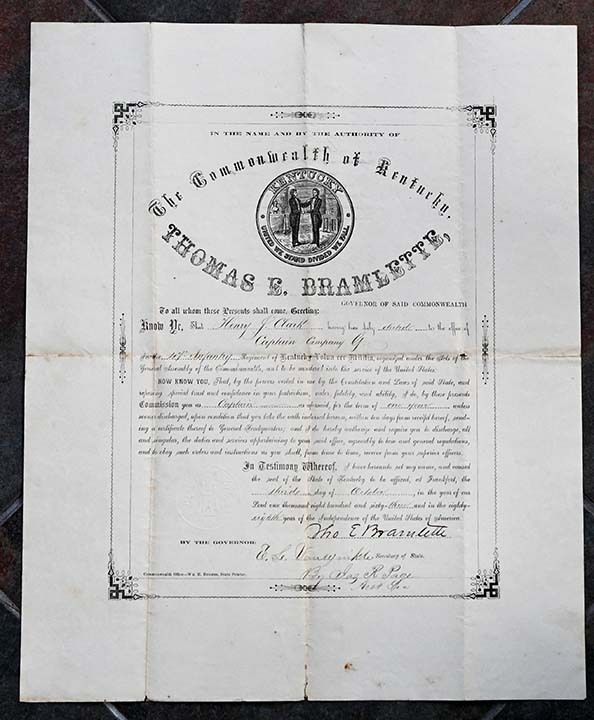 IN THE NAME AND BY THE AUTHORITY OF
The Commonwealth of Kentucky,
KENTUCKY
UNITED WE STAND DIVIDED WE FALL
THOMAS E. BRAMLETTE,
GOVERNOR OF SAID COMMONWEALTH
To all whom these Presents shall come, Greeting:
Know Ye, That Henry J. Clark having been duly elected to the office of
Captain Company G
Infantry Regiment of Kentucky Volunteer Militia, organized under the Acts of the
General Assembly of the Commonwealth, and to be mustered into the service of the United States:
NOW KNOW YOU, That, by the powers vested in me by the Constitution and Laws of said State, and
reposing special trust and confidence in your patriotism, valor, fidelity, and ability, I do, by these presents
Commission you as Captain as aforesaid, for the term of one year unless
sooner discharged, upon condition that you take the oath indorsed hereon, within ten days from receipt hereof, send-
ing a certificate thereof to General Headquarters; and I do hereby authorize and require you to discharge, all
and singular, the duties and services appertaining to your said office, agreeably to law and general regulations,
and to obey such orders and instructions as you shall, from time to time, receive from your superior officers.
In Testimony Whereof, I have hereunto set my name, and caused
the seal of the State of Kentucky to be affixed, at Frankfort, the
third day of October, in the year of our
Lord one thousand eight hundred and sixty-three and in the eighty-
eighth year of the Independence of the United States of America.
Tho E Bramlette
BY THE GOVERNOR:
E. L. Vanwinkle Secretary of State.
By Jas. R. Page
Commonwealth Office—Wm. E. Hughes, State Printer.